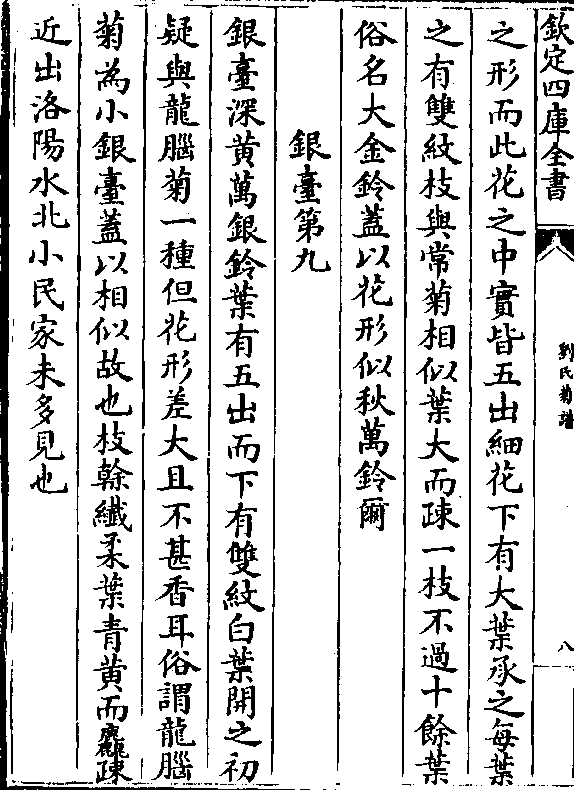 欽定四庫全書
劉氏菊譜
八
之形而此花之中實皆五出細花下有大葉承之每葉
之有雙紋枝與常菊相似葉大而疎一枝不過十餘葉
俗名大金鈴蓋以花形似秋萬鈴爾
銀臺第九
銀臺深黃萬銀鈴葉有五出而下有雙紋白葉開之初
疑與龍腦菊一種但花形差大且不甚香耳俗謂龍腦
菊為小銀臺蓋以相似故也枝榦纖柔葉青黃而麤疎
近出洛陽水北小民家未多見也